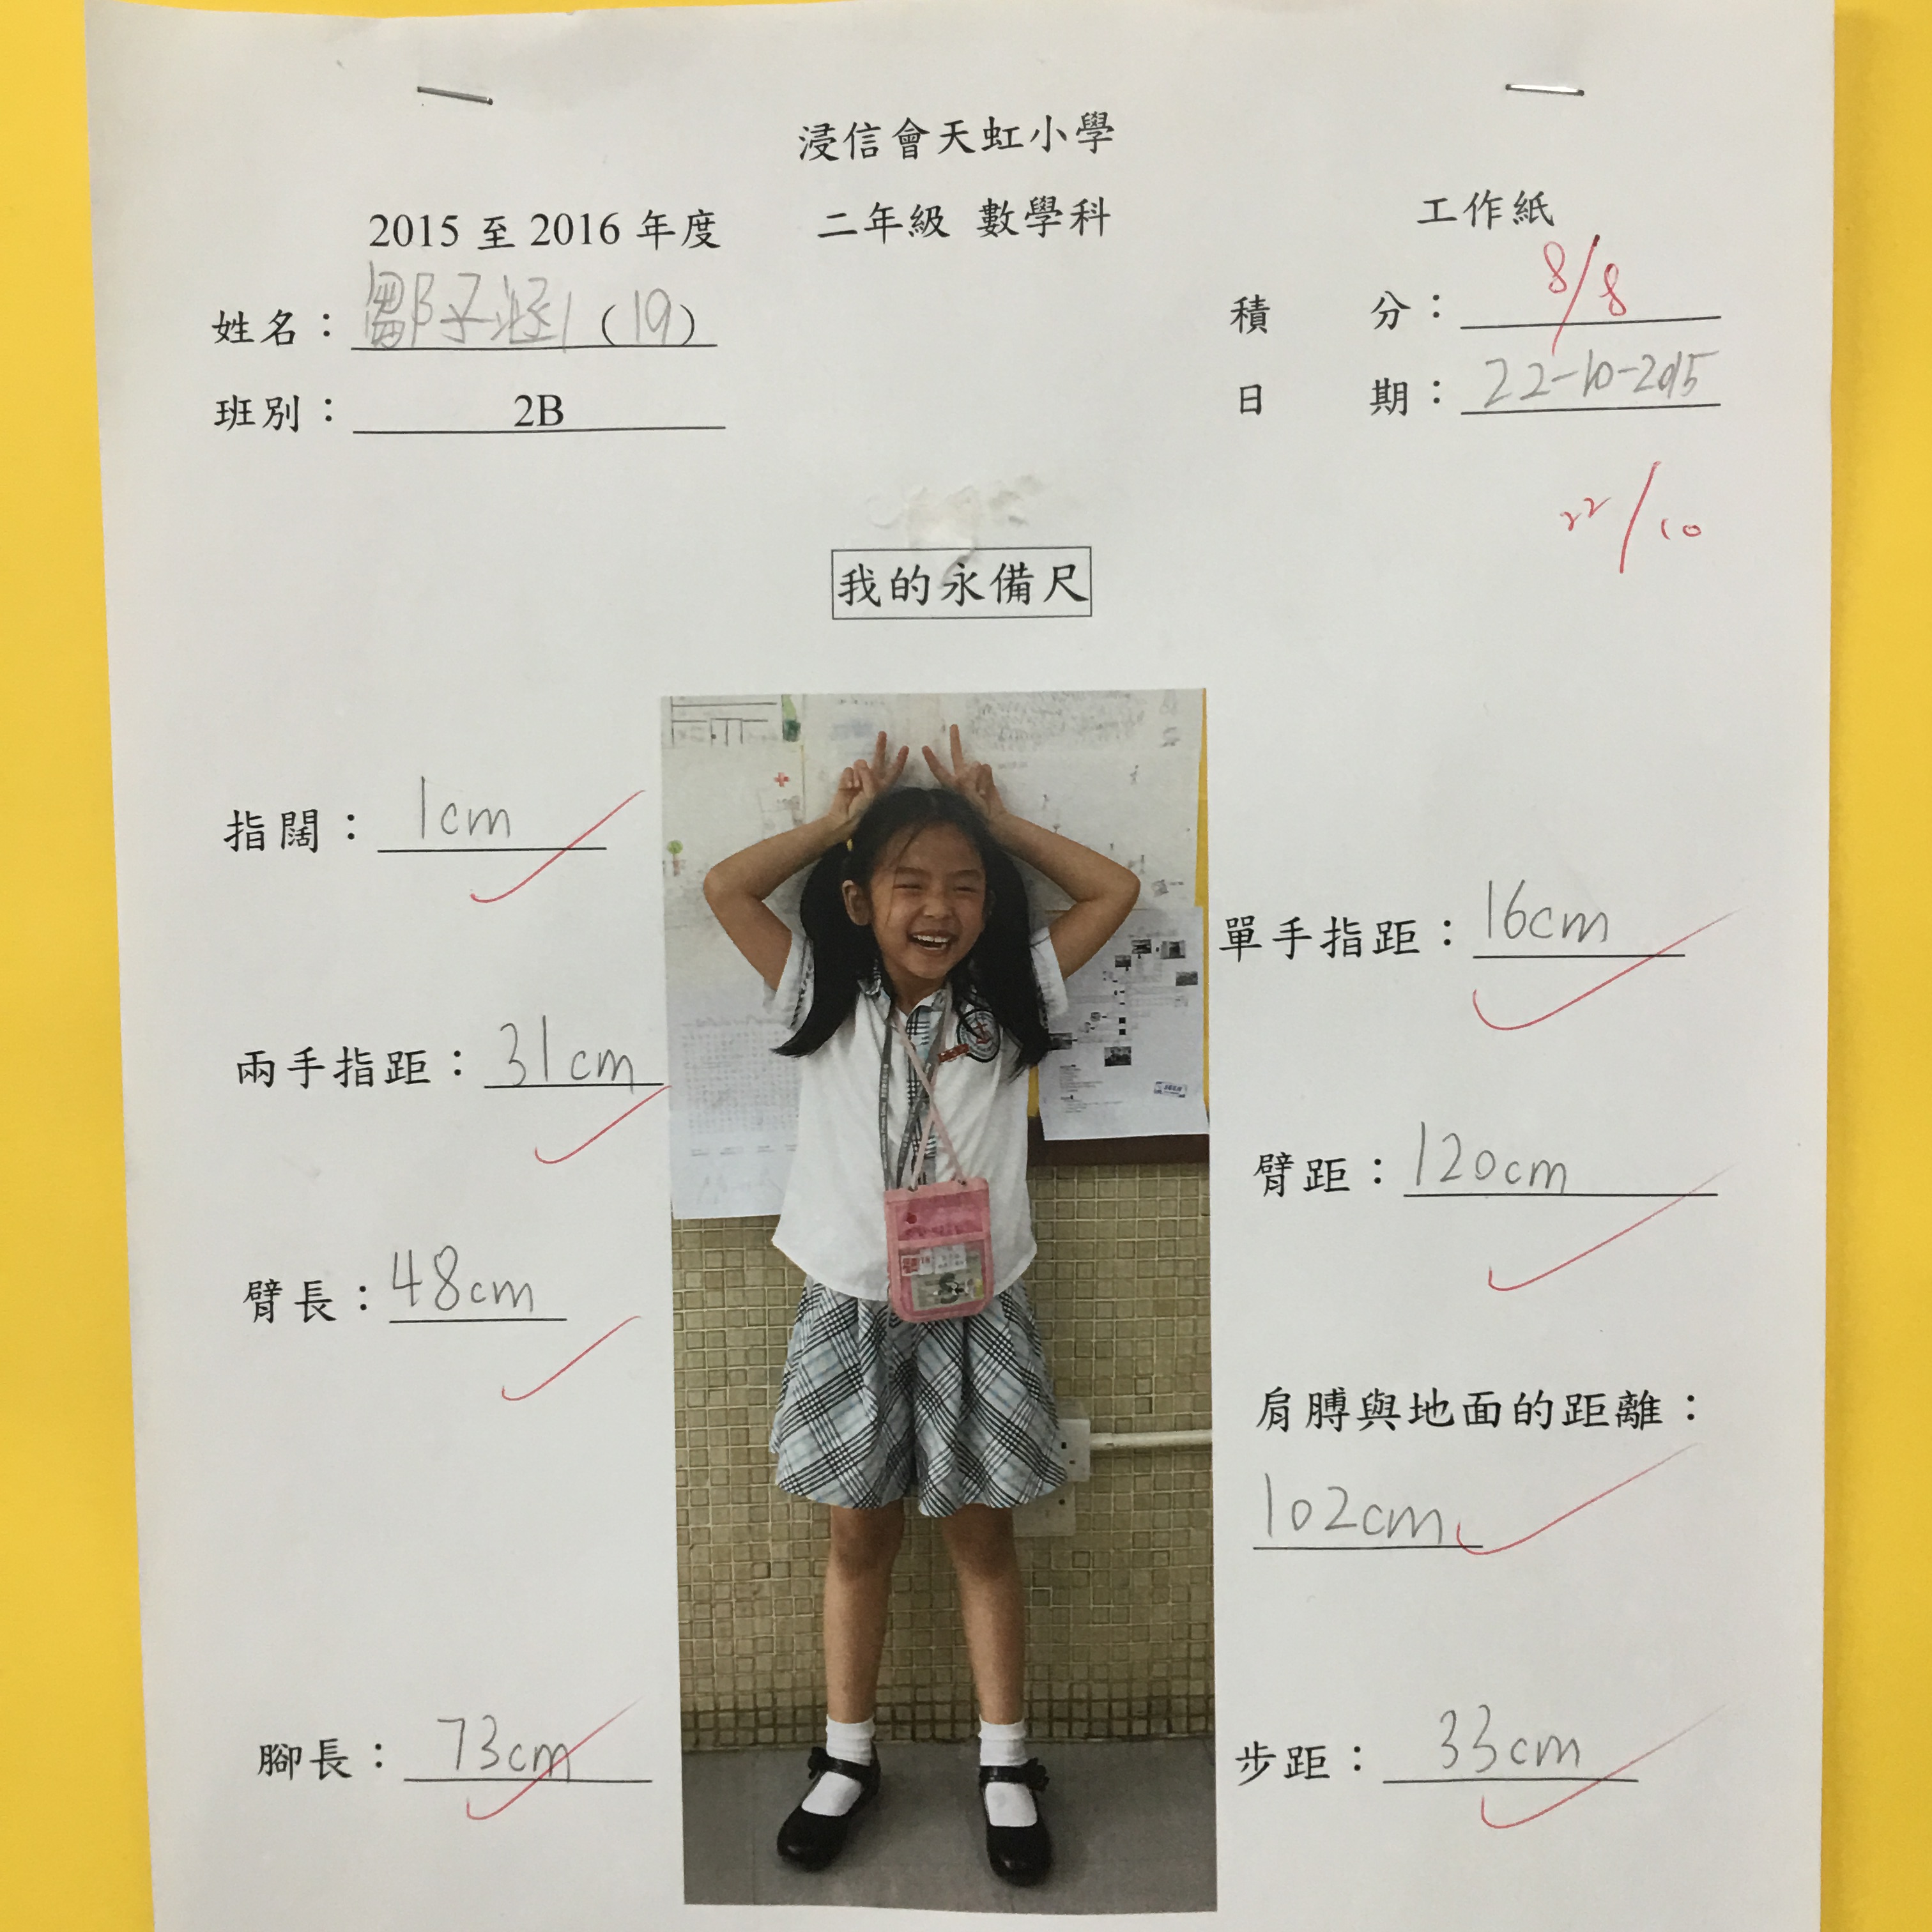 浸信會天虹小學
2015 至 2016 年度 二年級 數學科 工作紙
姓名：鄒子涵 (19) 積分：8/8
班別：2B 日期：22-10-2015
22/10
我的永備尺
指闊：1cm
單手指距：16cm
兩手指距：31cm
臂距：120cm
臂長：48cm
肩膊與地面的距離：
102cm
腳長：73cm
步距：33cm